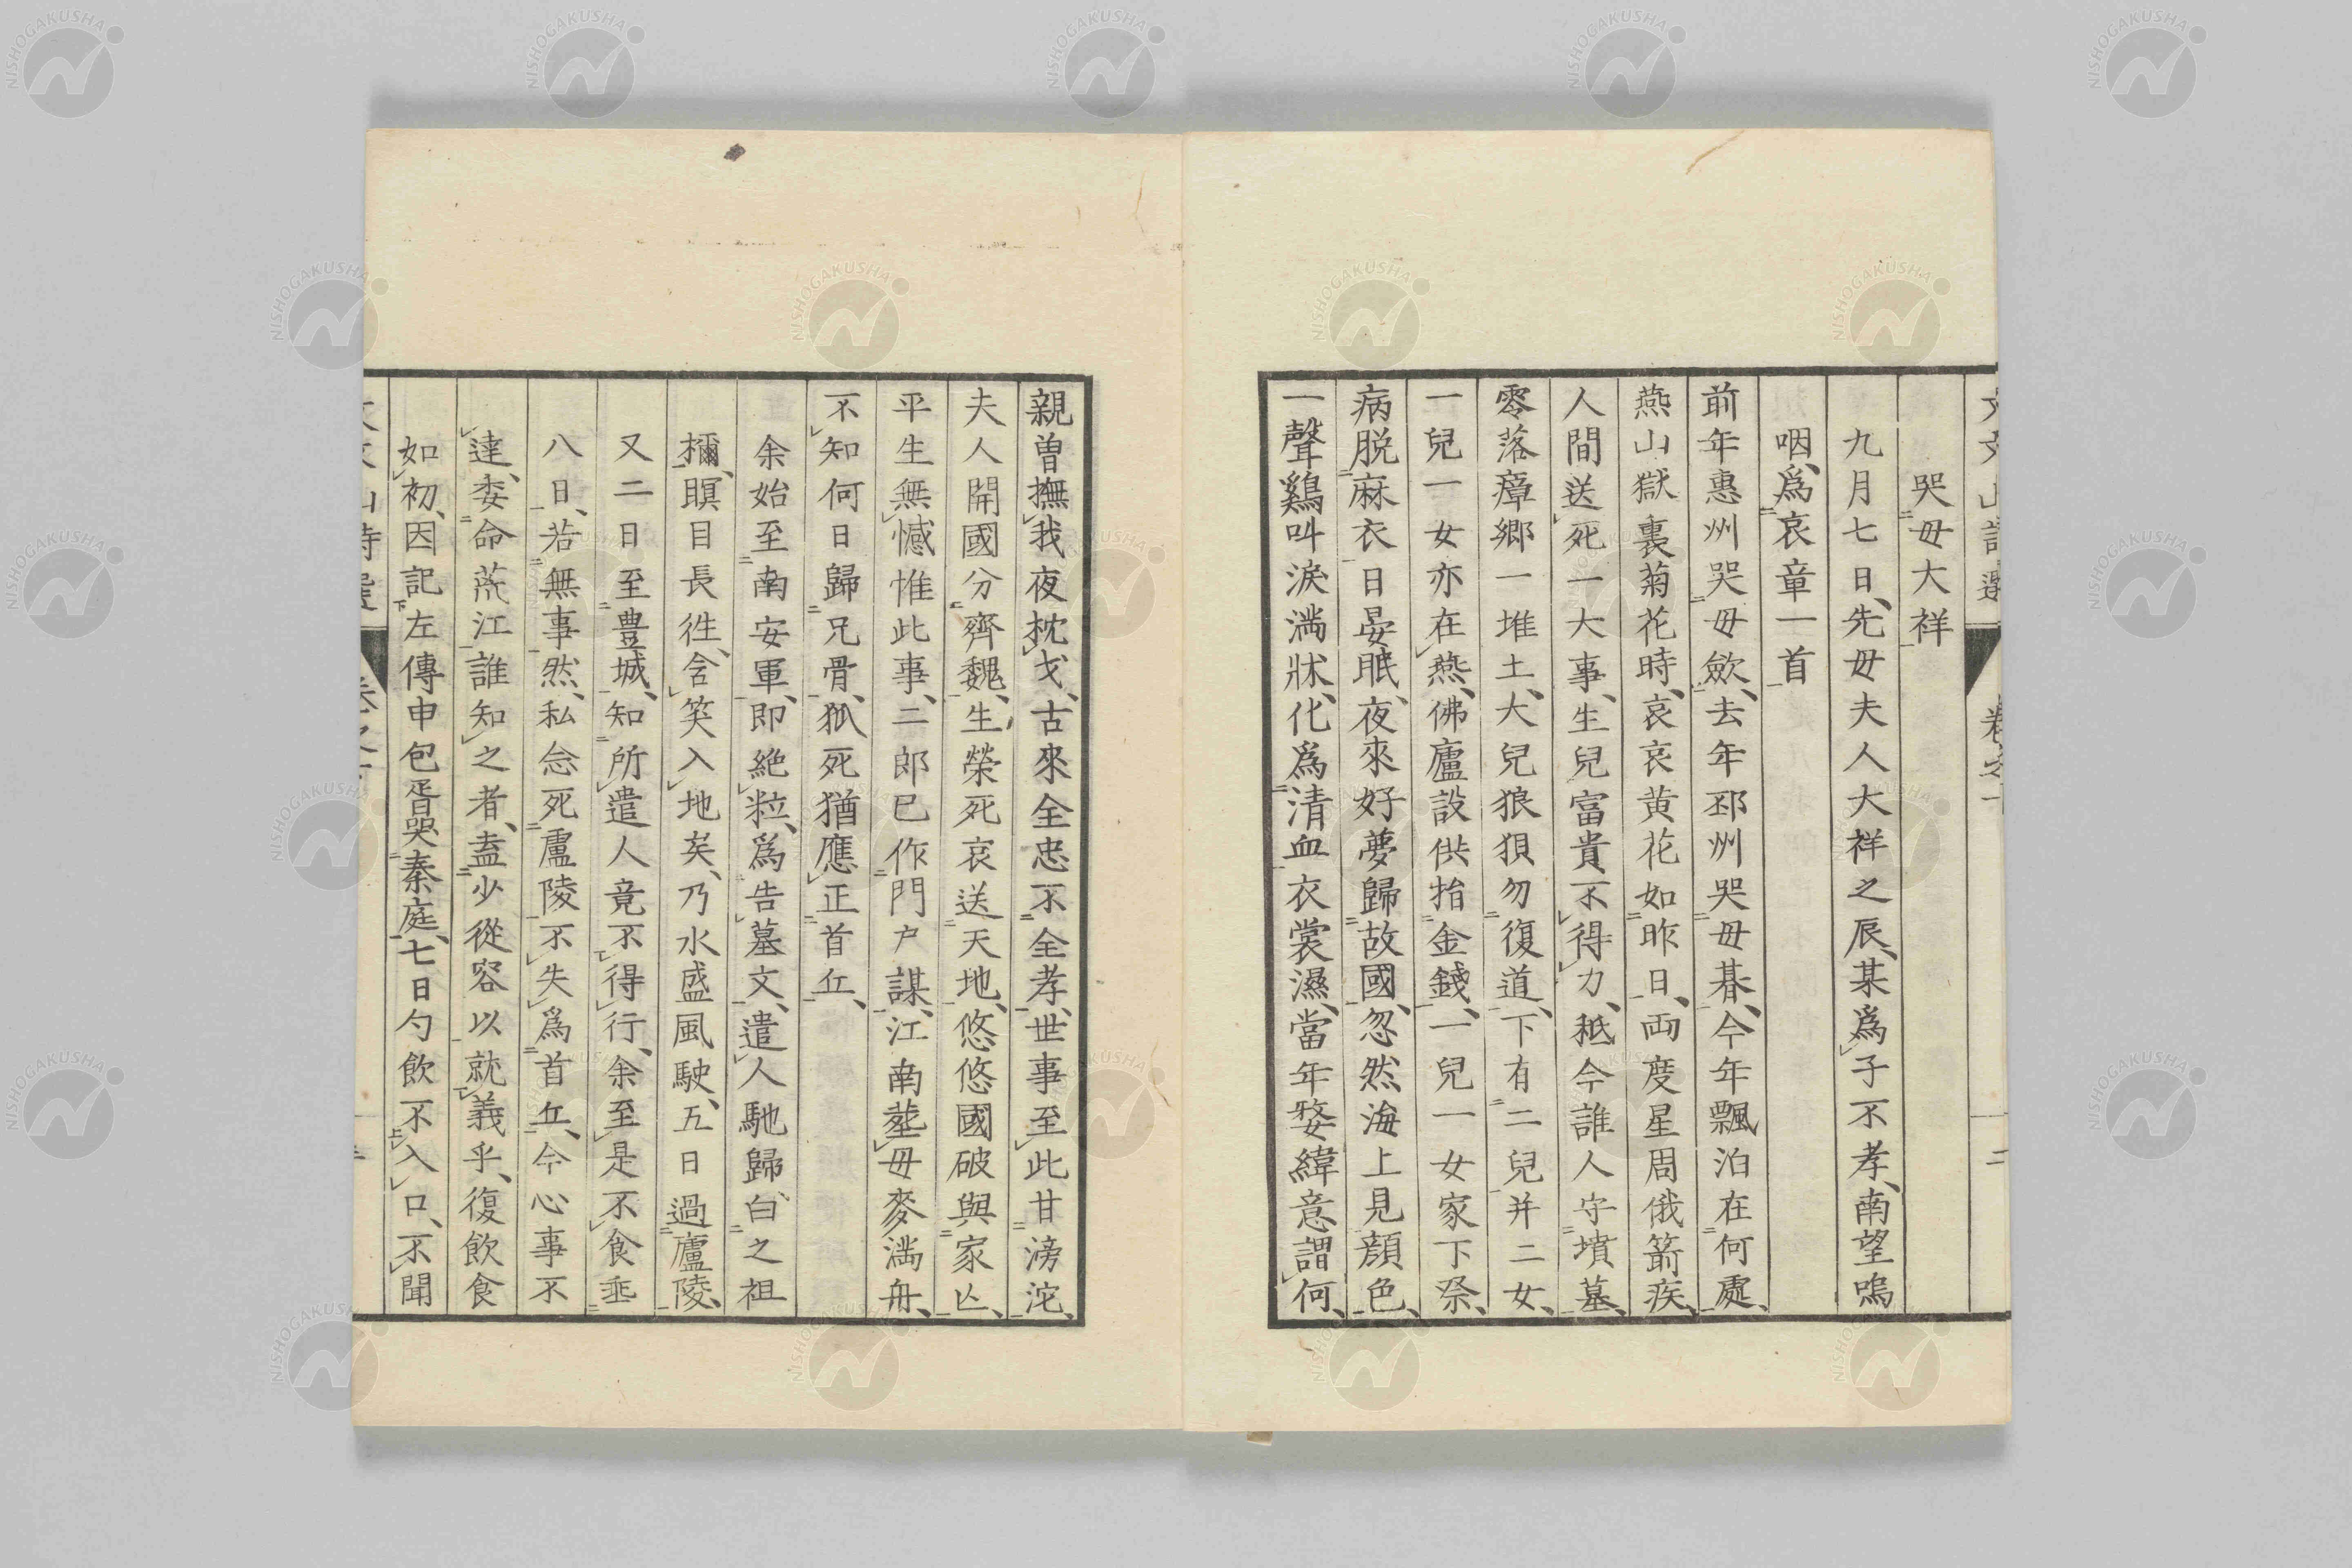 哭毋大祥
九月七日、先毋夫人大祥之辰、某爲子不孝、南望嗚
咽、爲哀章一首
前年惠州哭毋斂、去年邳州哭毋朞、今年飄泊在何處、
燕山獄裏菊花時、哀哀黄花如昨日、両度星周俄箭疾、
人間送死一大事、生兒富貴不得力、秪今誰人守墳墓、
零落瘴郷一堆土、大兒狼狽勿復道、下有二兒并二女、
一兒一女亦在燕、佛廬設供捨金錢、一兒一女家下祭、
病脱麻衣日晏眠、夜來好夢歸故國、忽然海上見顔色、
一聲鷄叫淚満牀、化爲清血衣裳濕、當年嫠緯意謂何、
親曽撫我夜枕戈、古來全忠不全孝、世事至此甘滂沱、
夫人開國分齊魏、生榮死哀送天地、悠悠國破與家亾、
平生無憾惟此事、二郎已作門户謀、江南塟毋麥満舟、
不知何日歸兄骨、狐死猶應正首丘、
余始至南安軍、即絶粒、爲告墓文、遣人馳歸、白之祖
禰、瞑目長徃、含笑入地矣、乃水盛風駛、五日過廬陵、
又二日至豊城、知所遣人竟不得行、余至是不食埀
八日、若無事然、私念死廬陵不失爲首丘、今心事不
達、委命荒江、誰知之者、盍少從容以就義乎、復飲食
如初、因記左傳申包胥哭秦庭、七日勺飲不入口、不聞